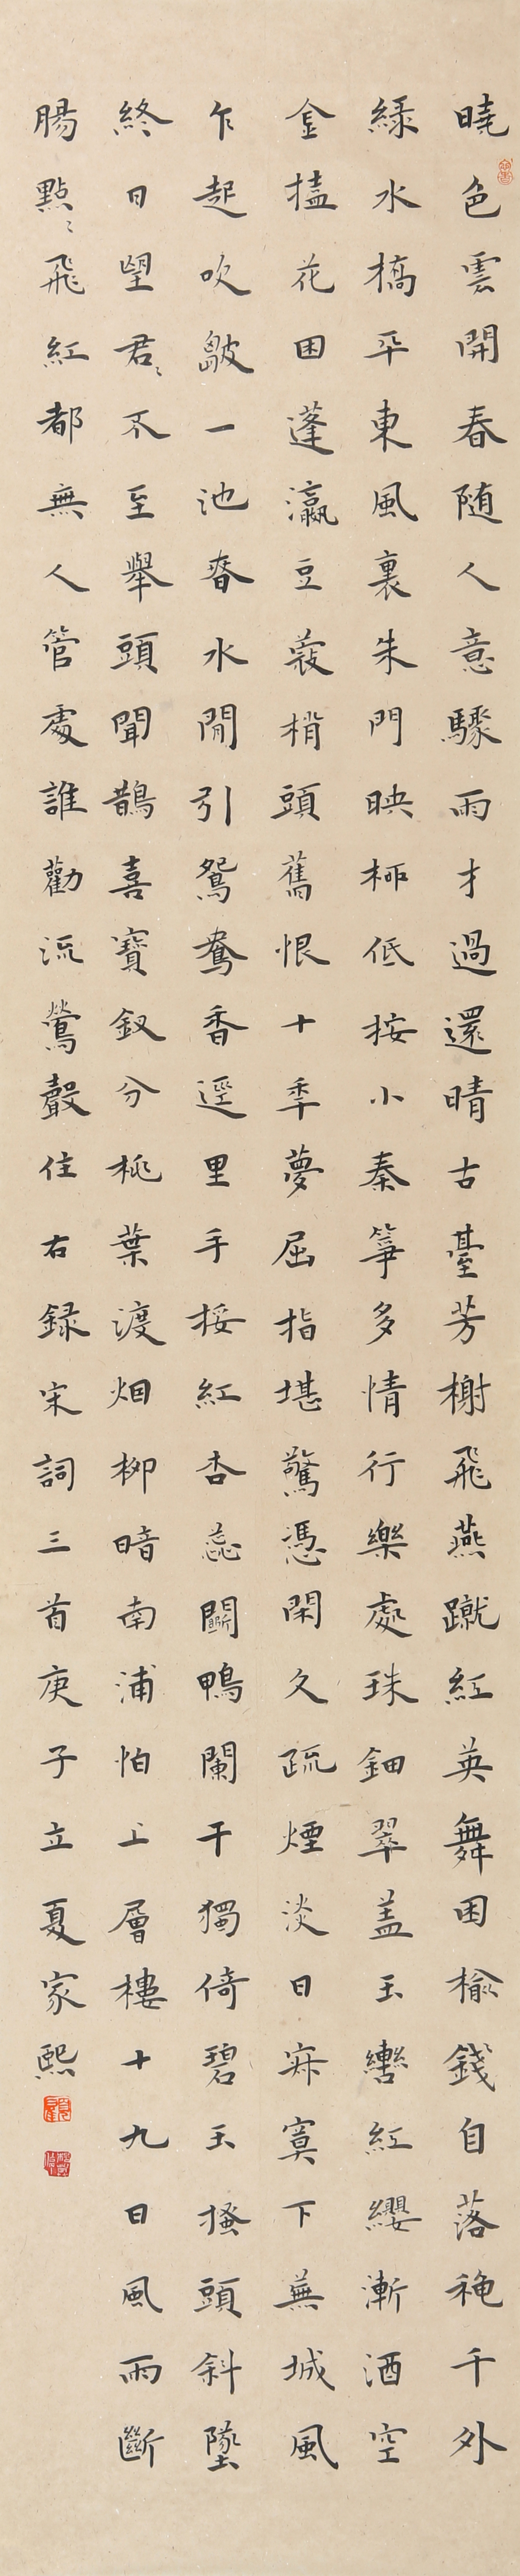 曉色雲開春随人意驟雨才過還晴古臺芳榭飛燕蹴紅英舞困榆錢自落秋千外
綠水橋平東風裏朱門映柳低按小秦箏多情行樂處珠鈿翠盖玉轡紅纓漸酒空
金榼花困蓬瀛豆蔻梢頭舊恨十年夢屈指堪驚憑闌久疏煙淡日寂寞下蕪城風
乍起吹皺一池春水閒引鴛鴦香逕里手挼紅杏蕊鬭鴨闌干獨倚碧玉搔頭斜墜
終日望君君不至舉頭聞鵲喜寶釵分桃葉渡烟柳暗南浦怕上層樓十九日風雨斷
腸點點飛紅都無人管處誰勸流鶯聲住右録宋詞三首庚子立夏家熙